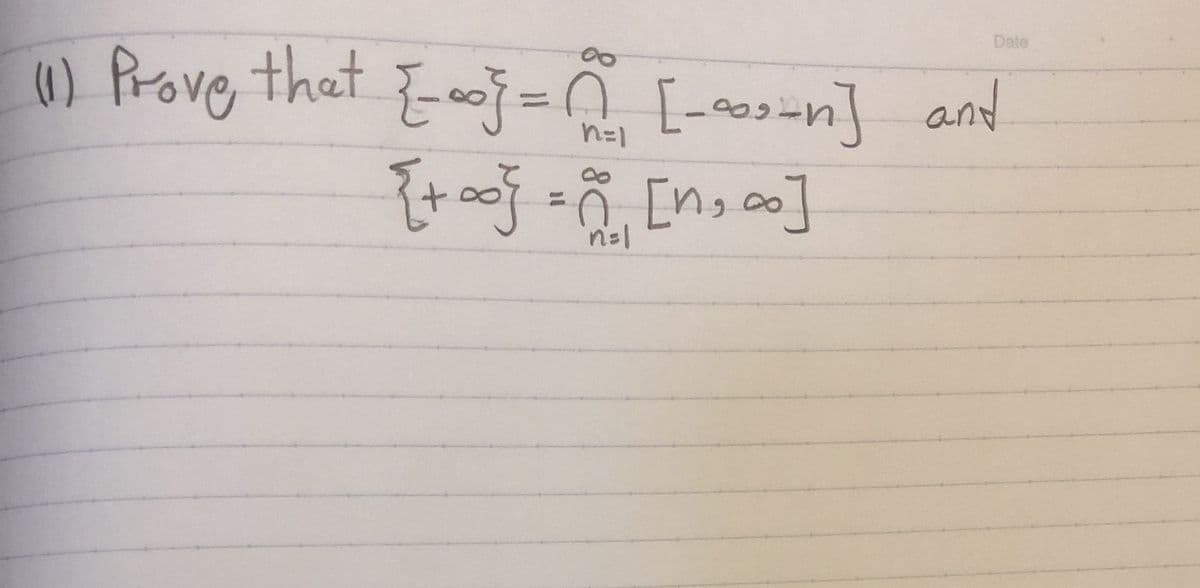 Date
(1) Prove that {-∞} = ∩ₙ₌₁^∞ [-∞, -n] and
{+∞} = ∩ₙ₌₁^∞ [n, ∞]